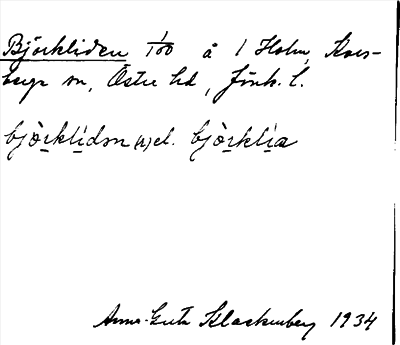 Björkliden 1/100 å 1 Holm, Kors-
berga sn, Östra hd, Jönk. l.
bjö̀rklìdən el. bjö̀rklìa
Anna-Greta Klackenberg 1934